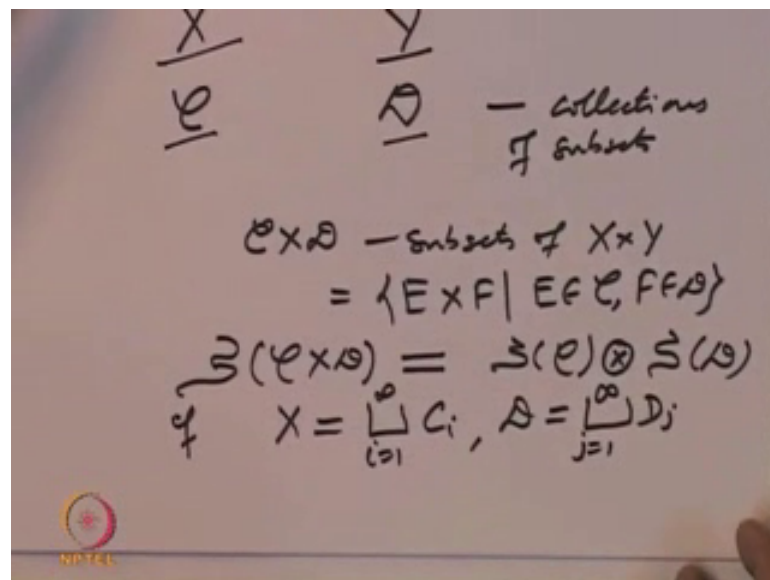 X Y
𝒞 𝒟 — collections
of subsets
𝒞×𝒟 — subsets of X×Y
= {E×F | E∈𝒞, F∈𝒟}
S(𝒞×𝒟) = S(𝒞)⊗S(𝒟)
if X = ⨆_{i=1}^{∞} C_i, 𝒟 = ⨆_{j=1}^{∞} D_j
NPTEL